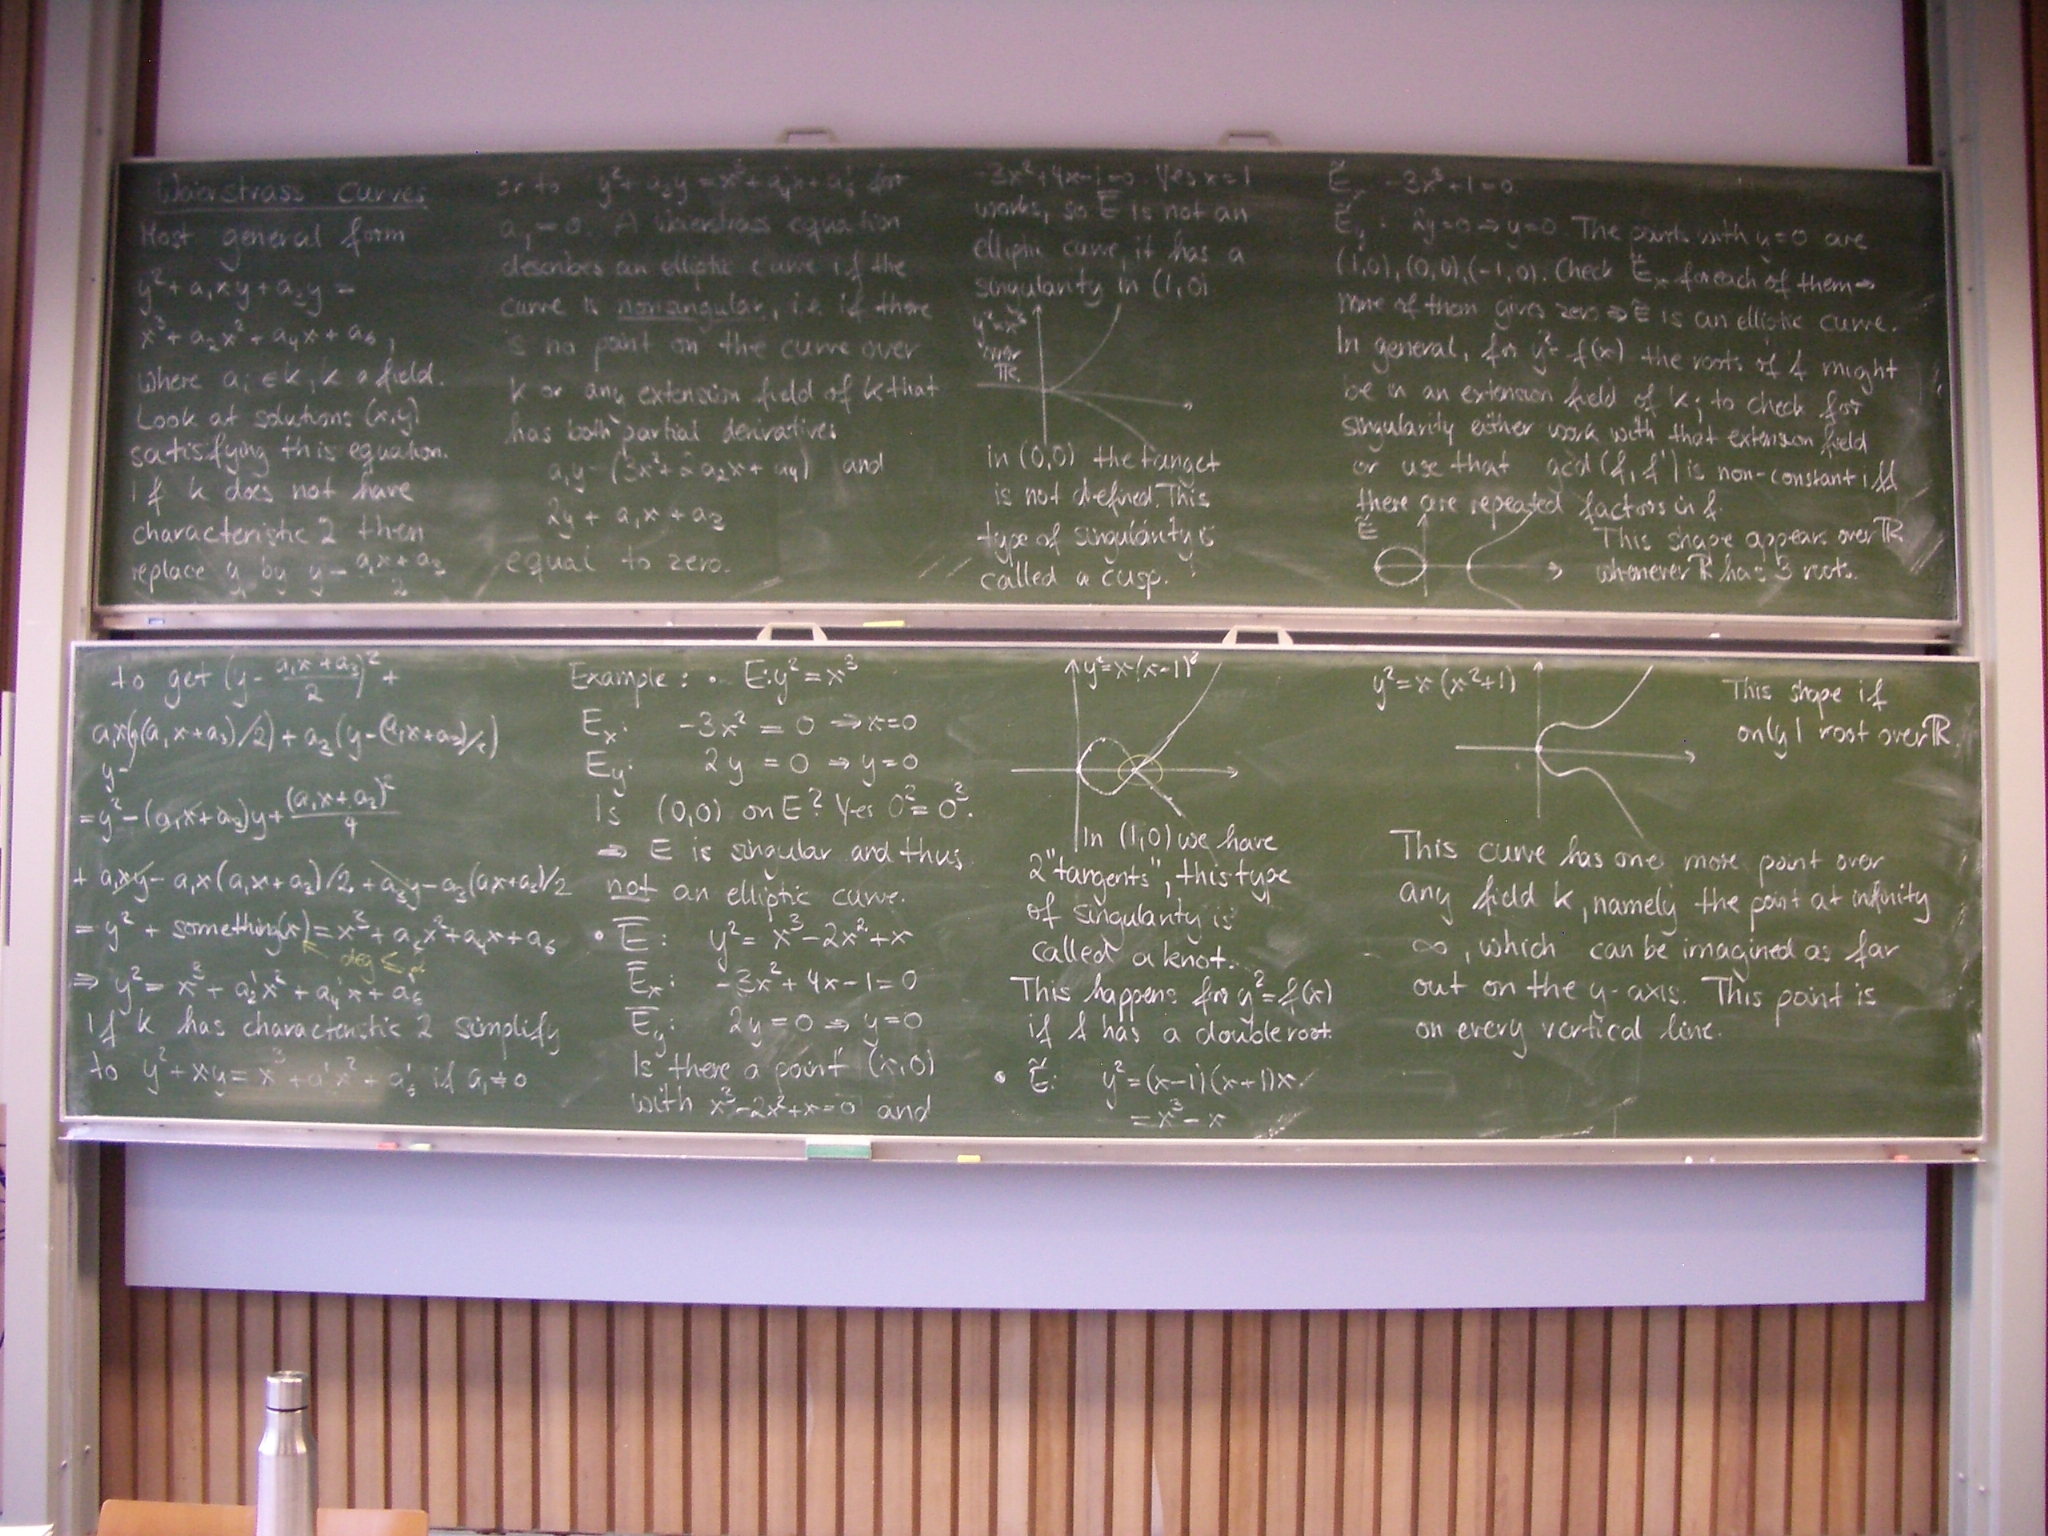 Weierstrass curves
Most general form
y² + a₁xy + a₃y =
x³ + a₂x² + a₄x + a₆,
where aᵢ ∈ k, k a field.
Look at solutions (x,y)
satisfying this equation.
If k does not have
characteristic 2 then
replace y by y - (a₁x + a₃)/2
to get (y - (a₁x + a₃)/2)² +
a₁x(y-(a₁x + a₃)/2) + a₃(y-(a₁x+a₃)/2)
= y² - (a₁x + a₃)y + (a₁x + a₃)²/4
+ a₁xy - a₁x(a₁x + a₃)/2 + a₃y - a₃(a₁x+a₃)/2
= y² + something(x) = x³ + a₂x² + a₄x + a₆
deg ≤ 2
⇒ y² = x³ + a₂'x² + a₄'x + a₆'
If k has characteristic 2 simplify
to y² + xy = x³ + a'x² + a₆' if a₁ ≠ 0
or to y² + a₃y = x³ + a₄'x + a₆' for
a₁ = 0. A Weierstrass equation
describes an elliptic curve if the
curve is nonsingular, i.e. if there
is no point on the curve over
k or any extension field of k that
has both partial derivatives
a₁y - (3x² + 2a₂x + a₄) and
2y + a₁x + a₃
equal to zero.
Example: • E: y² = x³
Eₓ: -3x² = 0 ⇒ x=0
E_y: 2y = 0 ⇒ y=0
Is (0,0) on E? Yes 0² = 0³.
⇒ E is singular and thus
not an elliptic curve.
• E̅: y² = x³ - 2x² + x
E̅ₓ: -3x² + 4x - 1 = 0
E̅_y: 2y = 0 ⇒ y=0
Is there a point (x,0)
with x³ - 2x² + x = 0 and
-3x² + 4x - 1 = 0. Yes x=1
works, so E̅ is not an
elliptic curve, it has a
singularity in (1,0)
y² = x³
over
ℝ
in (0,0) the tanget
is not defined. This
type of singularity is
called a cusp.
y² = x(x-1)²
In (1,0) we have
2 "tangents", this type
of singularity is
called a knot.
This happens for y² = f(x)
if f has a double root.
• Ẽ: y² = (x-1)(x+1)x
= x³ - x
Ẽₓ -3x² + 1 = 0
Ẽ_y: 2y = 0 ⇒ y=0. The points with y=0 are
(1,0), (0,0), (-1,0). Check Ẽₓ for each of them ⇒
none of them gives zero ⇒ Ẽ is an elliptic curve.
In general, for y² = f(x) the roots of f might
be in an extension field of k; to check for
singularity either work with that extension field
or use that gcd(f, f') is non-constant iff
there are repeated factors in f.
Ẽ
This shape appears over ℝ
whenever ℝ has 3 roots.
y² = x(x²+1)
This shape if
only 1 root over ℝ.
This curve has one more point over
any field k, namely the point at infinity
∞, which can be imagined as far
out on the y-axis. This point is
on every vertical line.